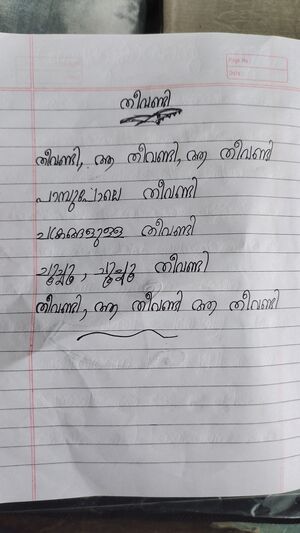 Page No:
Date:
തീവണ്ടി
തീവണ്ടി, ആ തീവണ്ടി, ആ തീവണ്ടി
പാമ്പുപോലെ തീവണ്ടി
ചക്രങ്ങളുള്ള തീവണ്ടി
തീവണ്ടി
തീവണ്ടി, ആ തീവണ്ടി ആ തീവണ്ടി